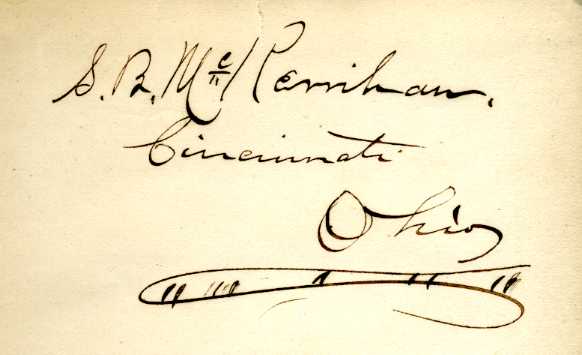 S. B. McKerrihan.
Cincinnati
Ohio